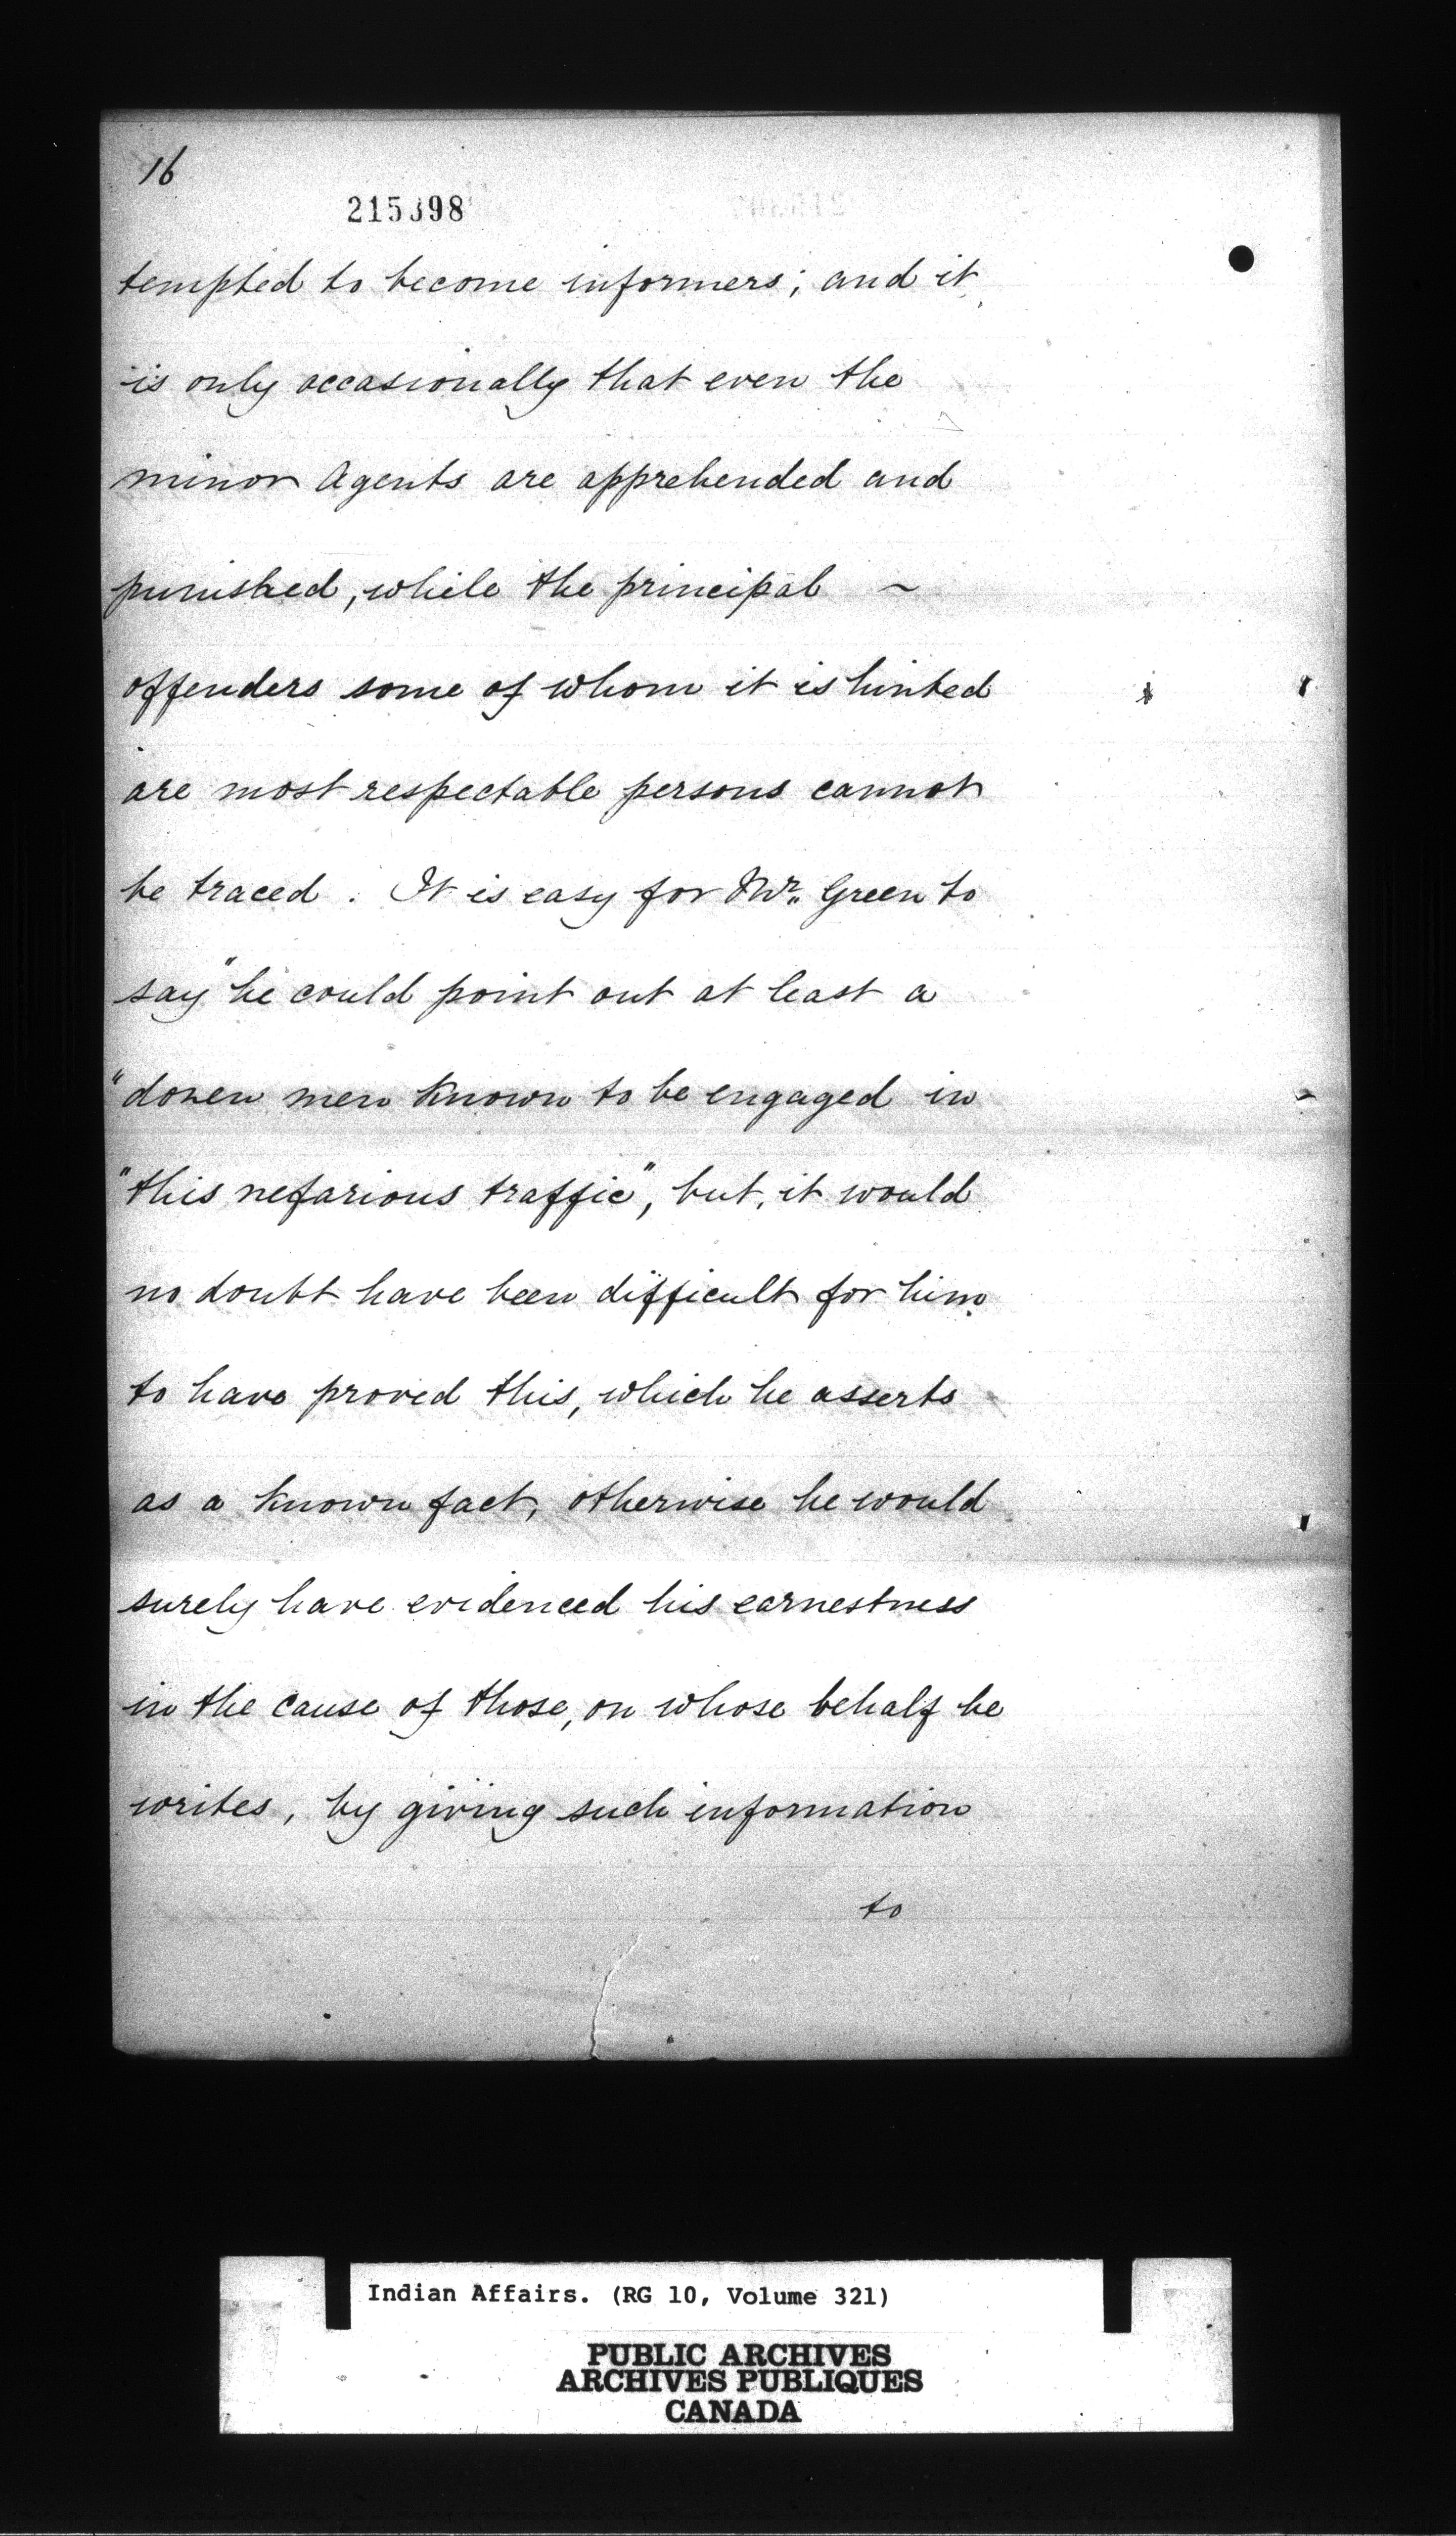 16
215398
tempted to become informers; and it
is only occasionally that even the
minor Agents are apprehended and
punished, while the principal ~
offenders some of whom it is hinted
are most respectable persons cannot
be traced. It is easy for Mr. Green to
say "he could point out at least a
"dozen men known to be engaged in
"this nefarious traffic", but, it would
no doubt have been difficult for him
to have proved this, which he asserts
as a known fact, otherwise he would
surely have evidenced his earnestness
in the cause of those, on whose behalf he
writes, by giving such information
to
Indian Affairs. (RG 10, Volume 321)
PUBLIC ARCHIVES
ARCHIVES PUBLIQUES
CANADA